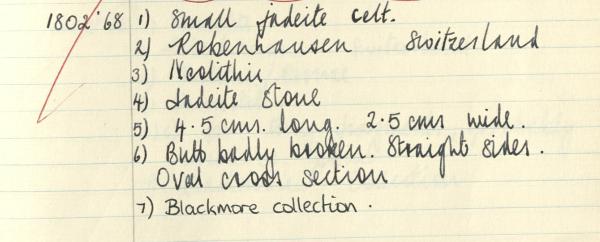 1802'68 1) Small jadeite celt.
2) Robenhausen Switzerland
3) Neolithic
4) Jadeite Stone
5) 4.5 cms. long. 2.5 cms wide.
6) Butt badly broken. Straight sides.
Oval cross section
7) Blackmore collection.